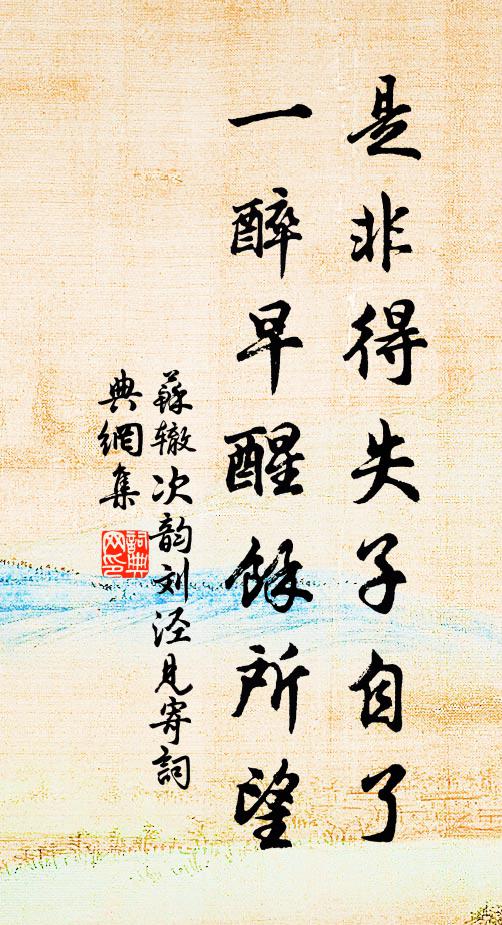 是非得失子自了
一醉早醒馀所望
蘇辙次韵刘泾見寄詞
典網集
詞典网印